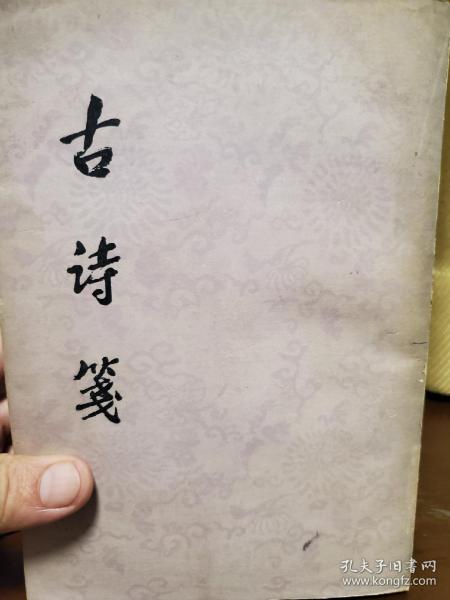 古诗笺
孔夫子旧书网
www.kongfz.com